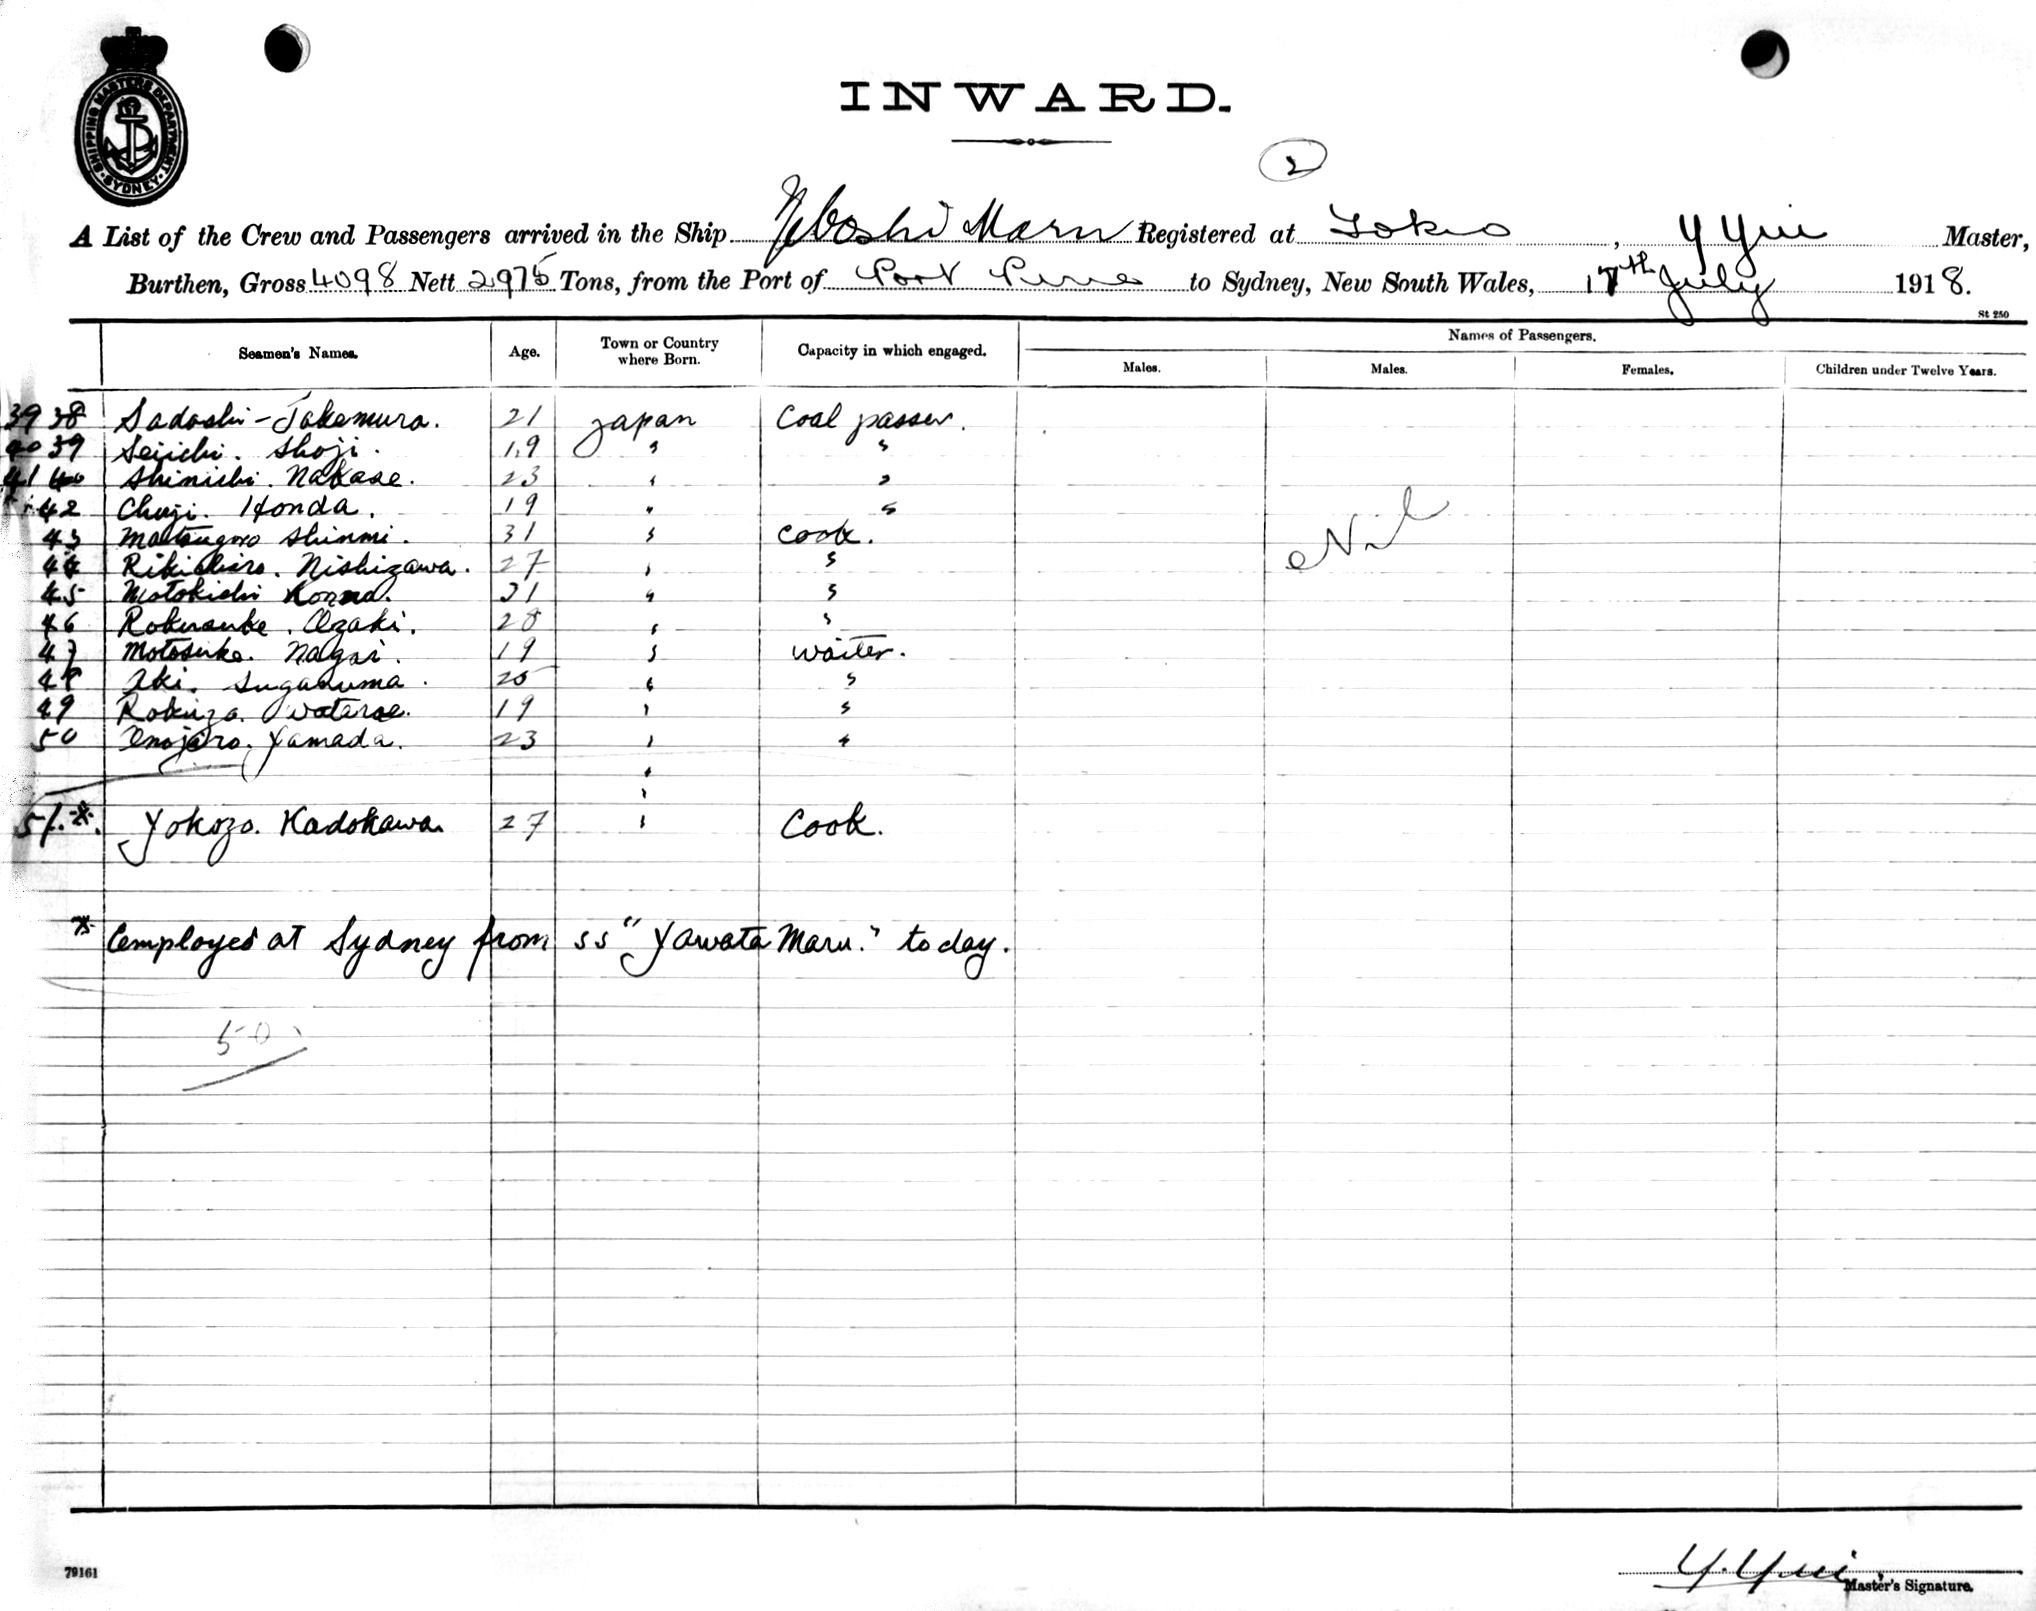 SHIPPING MASTERS DEPARTMENT
SYDNEY
INWARD.
2
A List of the Crew and Passengers arrived in the Ship Yeboshi Maru Registered at Tokio, Y Yui Master,
Burthen, Gross 4098 Nett 2975 Tons, from the Port of Port Pirie to Sydney, New South Wales, 17th July 1918.
St 250
Seamen's Names. Age. Town or Country where Born. Capacity in which engaged. Names of Passengers.
Males. Males. Females. Children under Twelve Years.
39 38 Sadashi - Takemura. 21 Japan Coal passer.
40 39 Seiichi. Shoji. 19 " "
41 40 Shinichi. Nakase. 23 " "
42 Chuji. Honda. 19 " "
Nil
43 Matsugoro Shinmi. 31 " Cook.
44 Rikichiro. Nishizawa. 27 " "
45 Motokichi 31 " "
46 Rokusuke. Ozaki. 28 " "
47 Motosuke. Nagai. 19 " waiter.
48 Aki. Suganuma. 25 " "
49 Rokuza. Watarae. 19 " "
50 Yamada. 23 " "
"
"
51.* Yokozo. Kadokawa. 27 " Cook.
* employed at Sydney from ss "Yawata Maru." today.
50
Y. Yui
79161 Master's Signature.